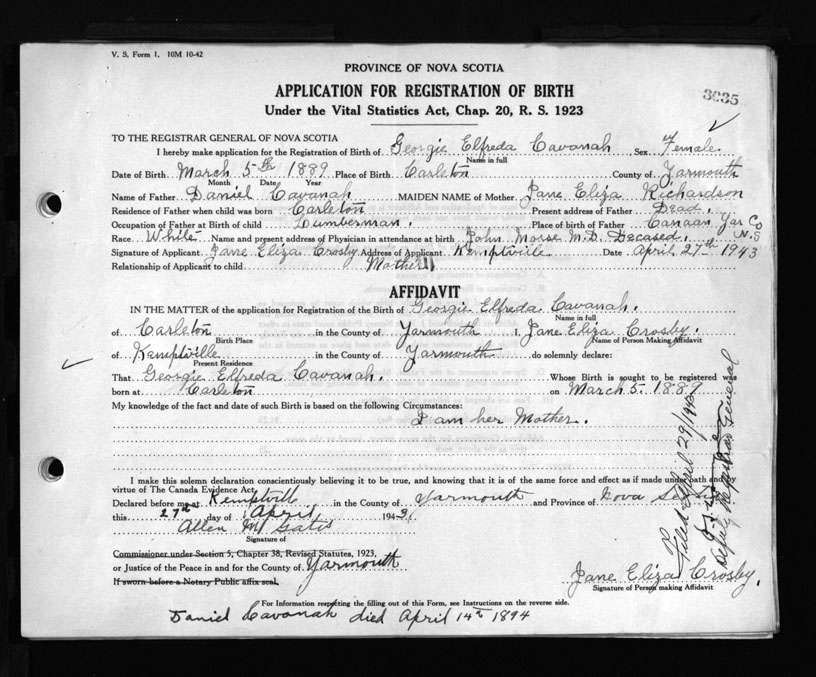 V. S. Form 1. 10M 10-42
PROVINCE OF NOVA SCOTIA
APPLICATION FOR REGISTRATION OF BIRTH
3035
Under the Vital Statistics Act, Chap. 20, R. S. 1923
TO THE REGISTRAR GENERAL OF NOVA SCOTIA
I hereby make application for the Registration of Birth of Georgie Elfreda Cavanah Sex Female
Name in full
Date of Birth March 5th 1889 Place of Birth Carleton County of Yarmouth
Month Date Year
Name of Father Daniel Cavanah MAIDEN NAME of Mother Jane Eliza Richardson
Residence of Father when child was born Carleton Present address of Father Dead.
Occupation of Father at Birth of child Lumberman. Place of birth of Father Canaan Yar Co N.S
Race White Name and present address of Physician in attendance at birth John Morse M.D. Deceased.
Signature of Applicant Jane Eliza Crosby Address of Applicant Kemptville Date April 27th 1943
Relationship of Applicant to child Mother
AFFIDAVIT
IN THE MATTER of the application for Registration of the Birth of Georgie Elfreda Cavanah.
Name in full
of Carleton in the County of Yarmouth I, Jane Eliza Crosby.
Birth Place Name of Person Making Affidavit
of Kemptville in the County of Yarmouth do solemnly declare:
Present Residence
That Georgie Elfreda Cavanah. Whose Birth is sought to be registered was
born at Carleton on March 5. 1887
My knowledge of the fact and date of such Birth is based on the following Circumstances:
I am her Mother.
I make this solemn declaration conscientiously believing it to be true, and knowing that it is of the same force and effect as if made under oath and
virtue of The Canada Evidence Act.
Declared before me at Kemptville in the County of Yarmouth and Province of Nova Scotia
this 27th day of April 1943
Allen M Gates
Signature of
Commissioner under Section 5, Chapter 38, Revised Statutes, 1923,
or Justice of the Peace in and for the County of Yarmouth
If sworn before a Notary Public affix seal.
Jane Eliza Crosby.
Signature of Person making Affidavit
Filed April 29/1943
Deputy Registrar General
For Information respecting the filling out of this Form, see Instructions on the reverse side.
Daniel Cavanah died April 14th 1894